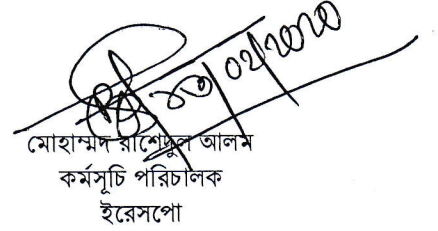 ১৩/০২/২০২০
মোহাম্মদ রাশেদুল আলম
কর্মসূচি পরিচালক
ইরেসপো